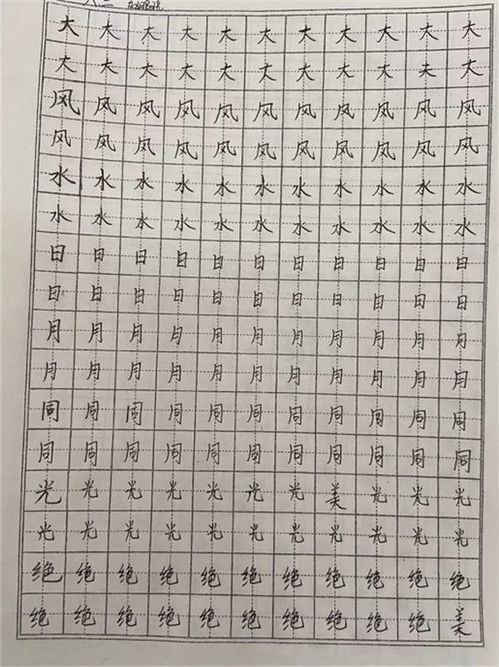 大大大大大大大大大大大
大大大大大大大大大夫大
风风风风风风风风风风风
风风风风风风风风风风风
水水水水水水水水水水水
水水水水水水水水水水水
日日日日日日日日日日日
日日日日日日日日日日日
月月月月月月月月月月月
月月月月月月月月月月月
周周周周周周周周周周周
周周周周周周周周周周同
光光光光光光光美光光光
光光光光光光光光光光光
绝绝绝绝绝绝绝绝绝绝绝
绝绝绝绝绝绝绝绝绝绝美